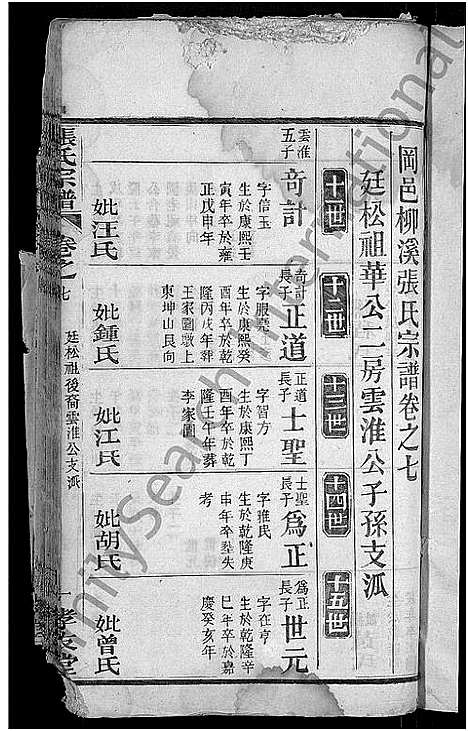 岡邑柳溪張氏宗譜卷之七
廷松祖華公二房雲淮公子孫支派
十一世
十二世
十三世
十四世
十五世
雲淮
五子
奇計
字信玉
生於康熙壬
寅年卒於雍
正戊申年
妣汪氏
奇計
長子
正道
生於康熙癸
酉年卒於乾
隆丙戌年葬
王家園墩上
東坤山艮向
妣鍾氏
正道
長子
士聖
字習方
生於康熙丁
酉年卒於乾
隆壬午年葬
李家園
妣江氏
士聖
長子
為正
字雅氏
生於乾隆庚
申年卒塟失
考
妣胡氏
為正
長子
世元
字在亨
生於乾隆辛
巳年卒於嘉
慶癸亥年
妣曾氏
張氏宗譜
卷之七
廷松祖後裔雲淮公支派
一
FamilySearch International